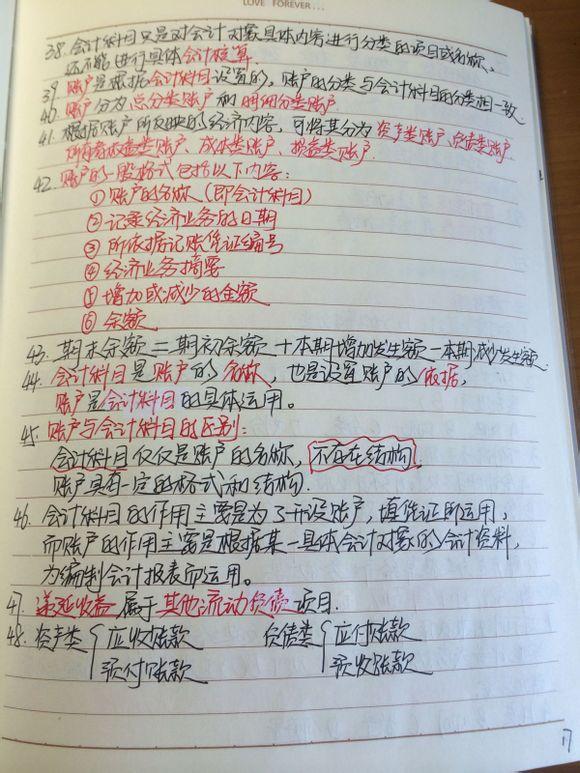 LOVE FOREVER...
38. 会计科目只是对会计对象具体内容进行分类的项目或名称,
还不能进行具体会计核算.
39. 账户是根据会计科目设置的, 账户的分类与会计科目的分类相一致.
40. 账户分为总分类账户和明细分类账户.
41. 根据账户所反映的经济内容, 可将其分为资产类账户、负债类账户
所有者权益类账户、成本类账户、损益类账户.
42. 账户的一般格式包括以下内容:
① 账户的名称 (即会计科目)
② 记录经济业务的日期
③ 所依据记账凭证编号
④ 经济业务摘要
⑤ 增加或减少的金额
⑥ 余额
43. 期末余额=期初余额+本期增加发生额-本期减少发生额.
44. 会计科目是账户的名称, 也是设置账户的依据,
账户是会计科目的具体运用。
45. 账户与会计科目的区别:
会计科目仅仅是账户的名称, 不存在结构,
账户具有一定的格式和结构.
46. 会计科目的作用主要是为了开设账户, 填凭证所运用,
而账户的作用主要是根据某一具体会计对象的会计资料,
为编制会计报表而运用。
47. 递延收益属于其他流动负债项目.
48. 资产类 { 应收账款 负债类 { 应付账款
预付账款 预收账款
17